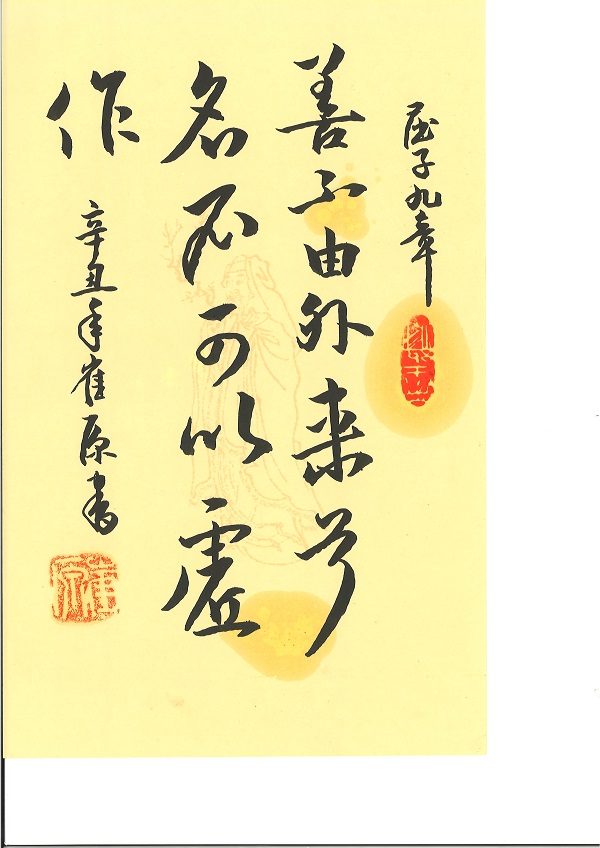 屈子九章
善不由外来兮
名不可以虚
作
辛丑年崔原书